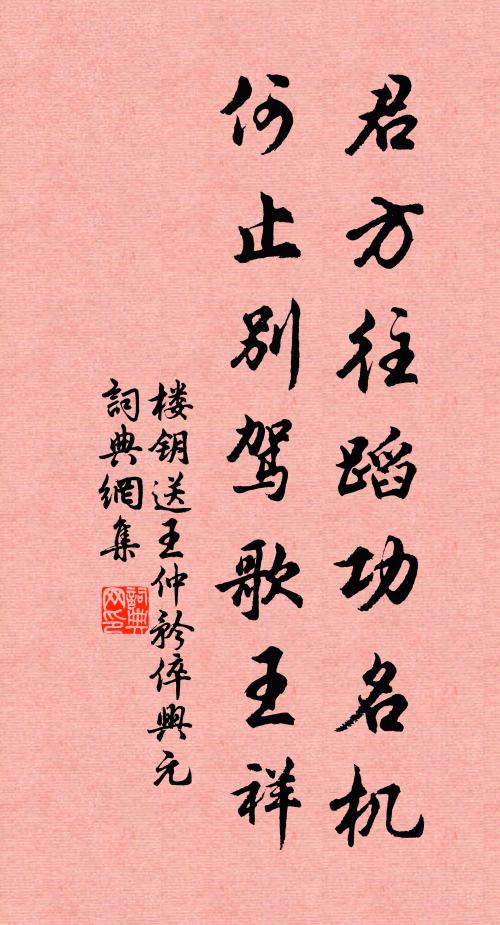 君方往蹈功名机
何止别驾歌王祥
楼钥送王仲矜倅興元
詞典網集
詞典网印